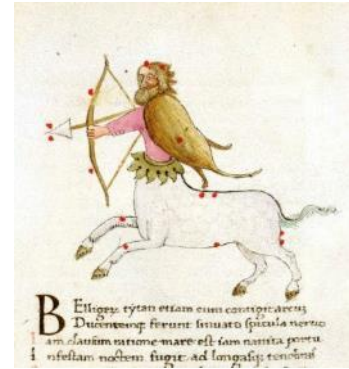 BElligerẽ tytan etiam cum contigit arcus
Ducentemq; ferunt sinuato spicula neruo
am clausum ratione mare est iam nauita portu
nfestam noctem fugit ad longasq;